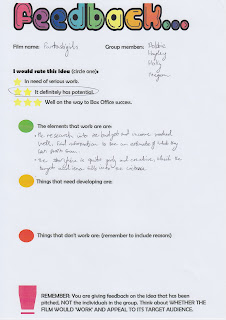 Feedback...
Film name: Group members: Debbie
Hayley
Holly
Megan
I would rate this idea (circle one):
In need of serious work.
It definitely has potential.
Well on the way to Box Office success.
The elements that work are are:
The research into the budget and income worked
well. Had information to
The storyline is quite good and creative, which the
target audience
Things that need developing are:
Things that don't work are: (remember to include reasons)
REMEMBER: You are giving feedback on the idea that has been
pitched, NOT the individuals in the group. Think about WHETHER THE
FILM WOULD 'WORK' AND APPEAL TO ITS TARGET AUDIENCE.